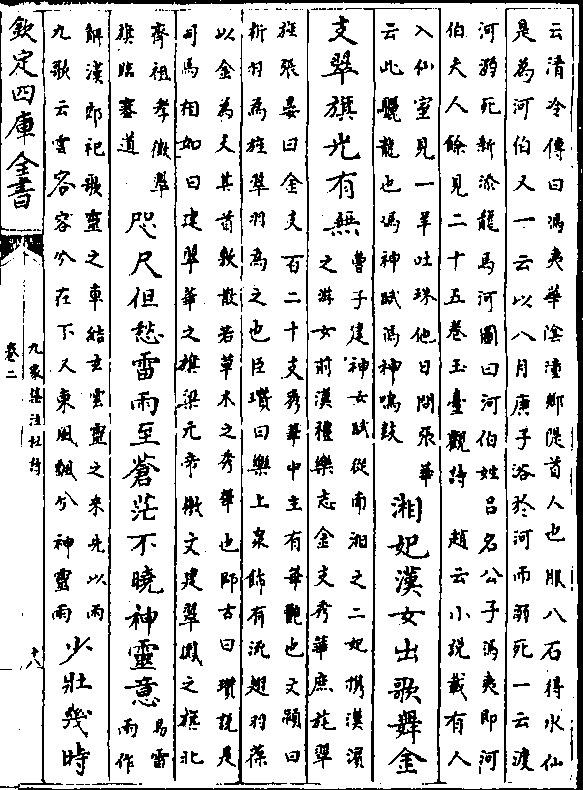 云清泠傳曰馮夷華陰潼鄉隄首人也服八石得水仙
是為河伯又一云以八月庚子浴於河而溺死一云渡
河溺死新添龍馬河圖曰河伯姓吕名公子馮夷即河
伯夫人餘見二十五卷玉臺觀詩 趙云小説載有人
入仙室見一羊吐珠他日問張華
云此驪龍也馮神賦馮神鳴鼓
湘妃漢女出歌舞金
支翠旗光有無
曹子建神女賦從南湘之二妃携漢濱
之游女前漢禮樂志金支秀華庶旄翠
旌張晏曰金支百二十支秀華中主有華艷也文穎曰
析羽為旌翠羽為之也臣瓚曰樂上衆飾有流遡羽葆
以金為支其首敷散若草木之秀華也師古曰瓚説是
司馬相如曰建翠華之旗梁元帝檄文建翠鳳之旗北
齊祖孝徴翠
旗臨塞道
咫尺但愁雷雨至蒼茫不曉神靈意
易雷
雨作
解漢郎祀歌靈之車結玄雲靈之来先以雨
九歌云雲容容兮在下又東風飄兮神靈雨
少壯幾時
欽定四庫全書
九家集注杜詩
卷二
十八